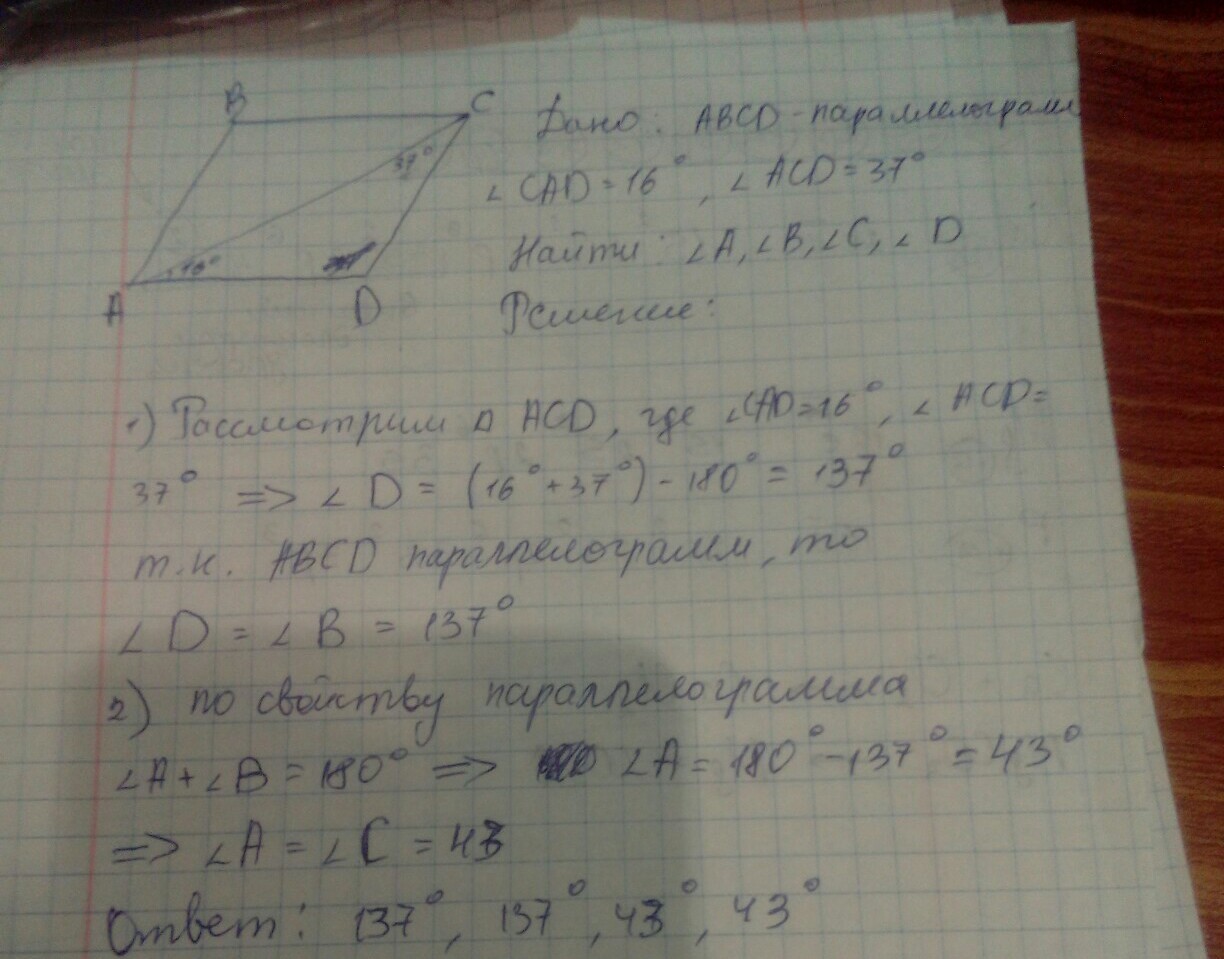 B
C
37°
16°
A
D
Дано: ABCD - параллелограмм
∠ CAD = 16°, ∠ ACD = 37°
Найти: ∠A, ∠B, ∠C, ∠ D
Решение:
1) Рассмотрим Δ ACD, где ∠CAD=16°, ∠ ACD=
37° => ∠ D = (16°+37°) - 180° = 137°
т.к. ABCD параллелограмм, то
∠ D = ∠ B = 137°
2) по свойству параллелограмма
∠A + ∠B = 180° => ∠A = 180° - 137° = 43°
=> ∠A = ∠C = 43
Ответ: 137°, 137°, 43°, 43°